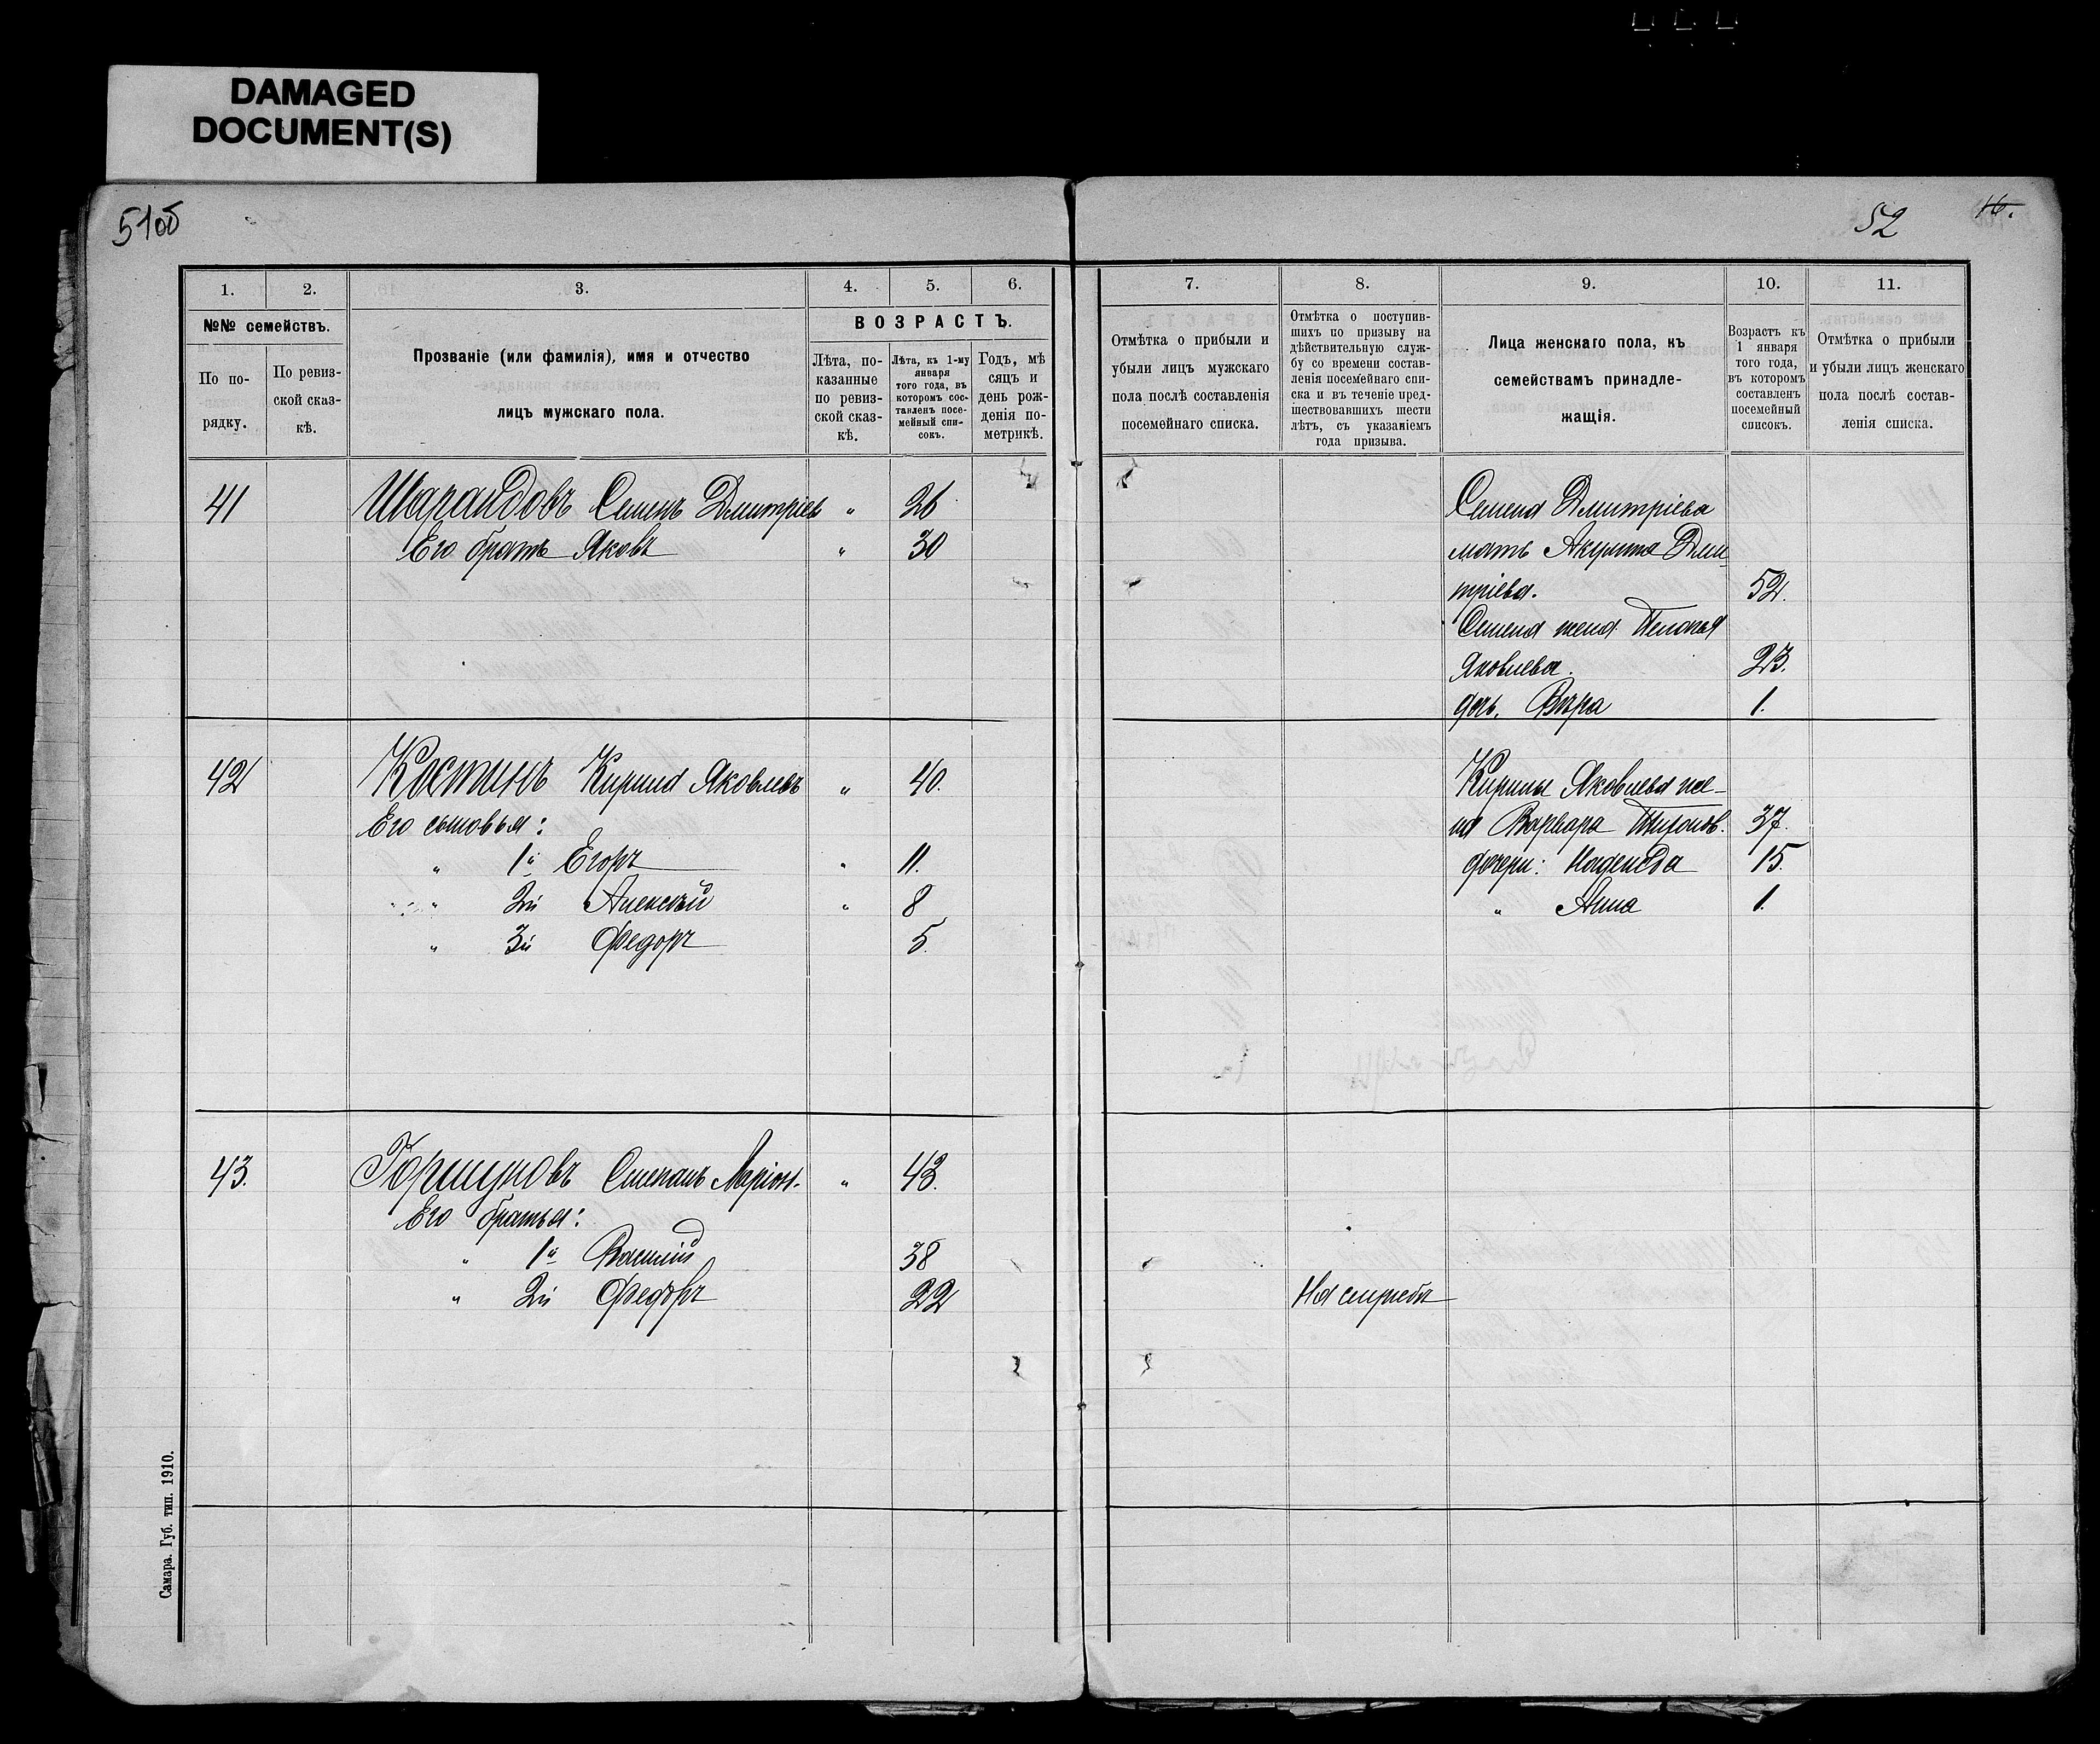 DAMAGED
DOCUMENT(S)
51об
52
16.
1.
2.
3.
4.
5.
6.
№№ семействъ.
По по-
рядку.
По ревиз-
ской сказ-
кѣ.
Прозваніе (или фамилія), имя и отчество
лицъ мужскаго пола.
ВОЗРАСТЪ.
Лѣта, по-
казанные
по ревиз-
ской сказ-
кѣ.
Лѣта, къ 1-му
января
того года, въ
которомъ сос-
тавленъ посе-
мейный спи-
сокъ.
Годъ, мѣ
сяцъ и
день рож-
денія по-
метрикѣ.
7.
8.
9.
10.
11.
Отмѣтка о прибыли и
убыли лицъ мужскаго
пола послѣ составленія
посемейнаго списка.
Отмѣтка о поступив-
шихъ по призыву на
дѣйствительную служ-
бу со времени состав-
ленія посемейнаго спи-
ска и въ теченіе пред-
шествовавшихъ шести
лѣтъ, съ указаніемъ
года призыва.
Лица женскаго пола, къ
семействамъ принадле-
жащія.
Возрастъ къ
1 января
того года,
въ которомъ
составленъ
посемейный
списокъ.
Отмѣтка о прибыли
и убыли лицъ женскаго
пола послѣ состав-
ленія списка.
41 Шарандовъ Семенъ Дмитріевъ " 26
Его братъ Яковъ " 30
Семена Дмитріева
мать Акулина Дми-
тріева. 52.
Семена жена Пелагея
Яковлева. 23.
дочь, Вѣра 1.
42 Костинъ Кирилъ Яковлевъ " 40.
Его сыновья:
" 1й Егоръ " 11.
" 2й Алексѣй " 8
" 3й Федоръ 5.
Кирилы Яковлева же-
на Варвара Тихонов. 37.
дочери: Надежда 15.
" Анна 1.
43. Горшуновъ Степанъ Ларіон. " 43.
Его братья:
" 1й Василій 38
" 2й Федоръ 22
На службѣ
Самара. Губ. тип. 1910.